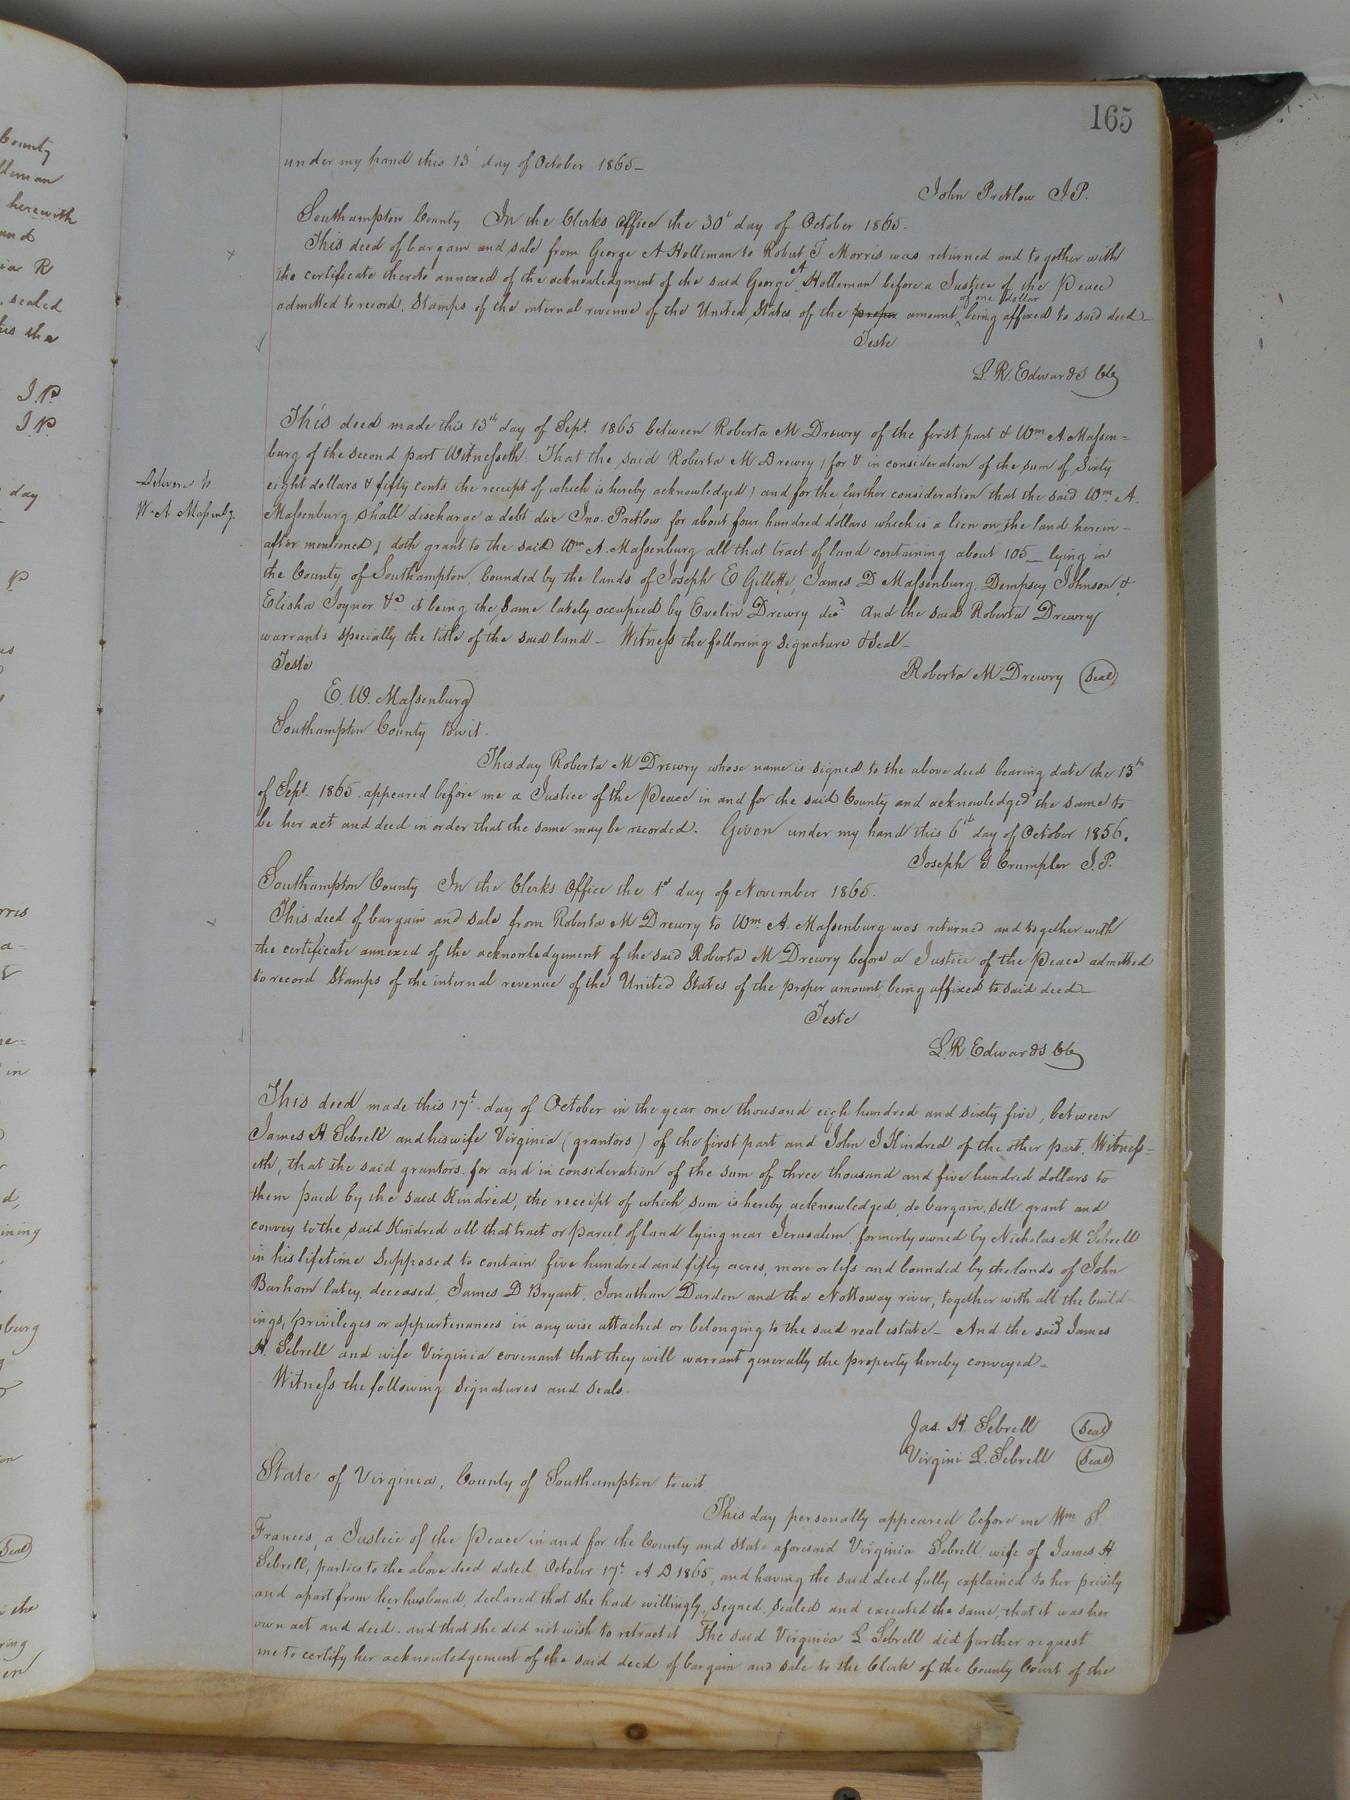 165
under my hand this 13' day of October 1865-
John Pretlow J.P.
Southampton County In the Clerks Office the 30' day of October 1865.
This deed of bargain and sale from George A Holleman to Robert T Morris was returned and together with
the certificate thereto annexed of the acknowledgment of the said George A Holleman before a Justice of the Peace
admitted to record. Stamps of the internal revenue of the United States of the prope amount of one dollar being affixed to said deed-
Teste
L. R. Edwards Clk
This deed made this 13th day of Sept. 1865 between Roberta M Drewry of the first part & Wm A Massen=
burg of the second part Witnesseth: That the said Roberta M Drewry, for & in consideration of the sum of Sixty
eight dollars & fifty cents the receipt of which is hereby acknowledged, and for the further consideration that the said Wm A.
Massenburg shall discharge a debt due Jno. Pretlow for about four hundred dollars which is a lien on the land herein-
after mentioned, doth grant to the said Wm A. Massenburg all that tract of land containing about 105- lying in
the County of Southampton, bounded by the lands of Joseph E Gillette, James D Massenburg, Dempsey Johnson &
Elisha Joyner &c it being the same lately occupied by Evelin Drewry decd And the said Roberta Drewry
warrants specially the title of the said land- Witness the following signature & seal-
Teste
Roberta M Drewry (Seal)
E. W. Massenburg
Southampton County towit.
This day Roberta M Drewry whose name is signed to the above deed bearing date the 13th
of Sept. 1865. appeared before me a Justice of the Peace in and for the said County and acknowledged the same to
be her act and deed in order that the same may be recorded. Given under my hand this 6th day of October 1856.
Joseph G Crumpler J.P.
Southampton County In the Clerks Office the 1st day of November 1865.
This deed of bargain and sale from Roberta M Drewry to Wm A. Massenburg was returned and together with
the certificate annexed of the acknowledgement of the said Roberta M Drewry before a Justice of the Peace admitted
to record Stamps of the internal revenue of the United States of the proper amount being affixed to said deed-
Teste
L. R Edwards Clk
Deliverd to
W. A Massenbg.
This deed made this 17t. day of October in the year one thousand eigh hundred and sixty five, between
James H Sebrell and his wife Virginia (grantors) of the first part and John J Kindred of the other part, Witness=
eth, that the said grantors. for and in consideration of the sum of three thousand and five hundred dollars to
them paid by the said Kindred, the receipt of which sum is hereby acknowledged, do bargain, sell grant and
convey to the said Kindred all that tract or parcel of land lying near Jerusalem, formerly owned by Nicholas M Sebrell
in his lifetime supposed to contain five hundred and fifty acres, more or less and bounded by the lands of John
Barham latey, deceased, James D Bryant, Jonathan Darden and the Nottoway river, together with all the build-
ings, privileges or appurtenances in any wise attached or belonging to the said real estate- And the said James
H. Sebrell and wife Virginia covenant that they will warrant generally the property hereby conveyed-
Witness the following signatures and seals.
Jas. H. Sebrell (Seal)
Virgini L. Sebrell (Seal)
State of Virginia, County of Southampton towit
This day personally appeared before me Wm S.
Frances, a Justice of the Peace in and for the County and State aforesaid Virginia Sebrell, wife of James H.
Sebrell, parties to the above deed dated October 17t. A D 1865, and having the said deed fully explained to her privily
and apart from her husband, declared that she had willingly, signed, sealed and executed the same, that it was her
own act and deed. and that she did not wish to retract it The said Virginia L Sebrell did further request
me to certify her acknowledgement of the said deed of bargain and sale to the Clerk of the County Court of the